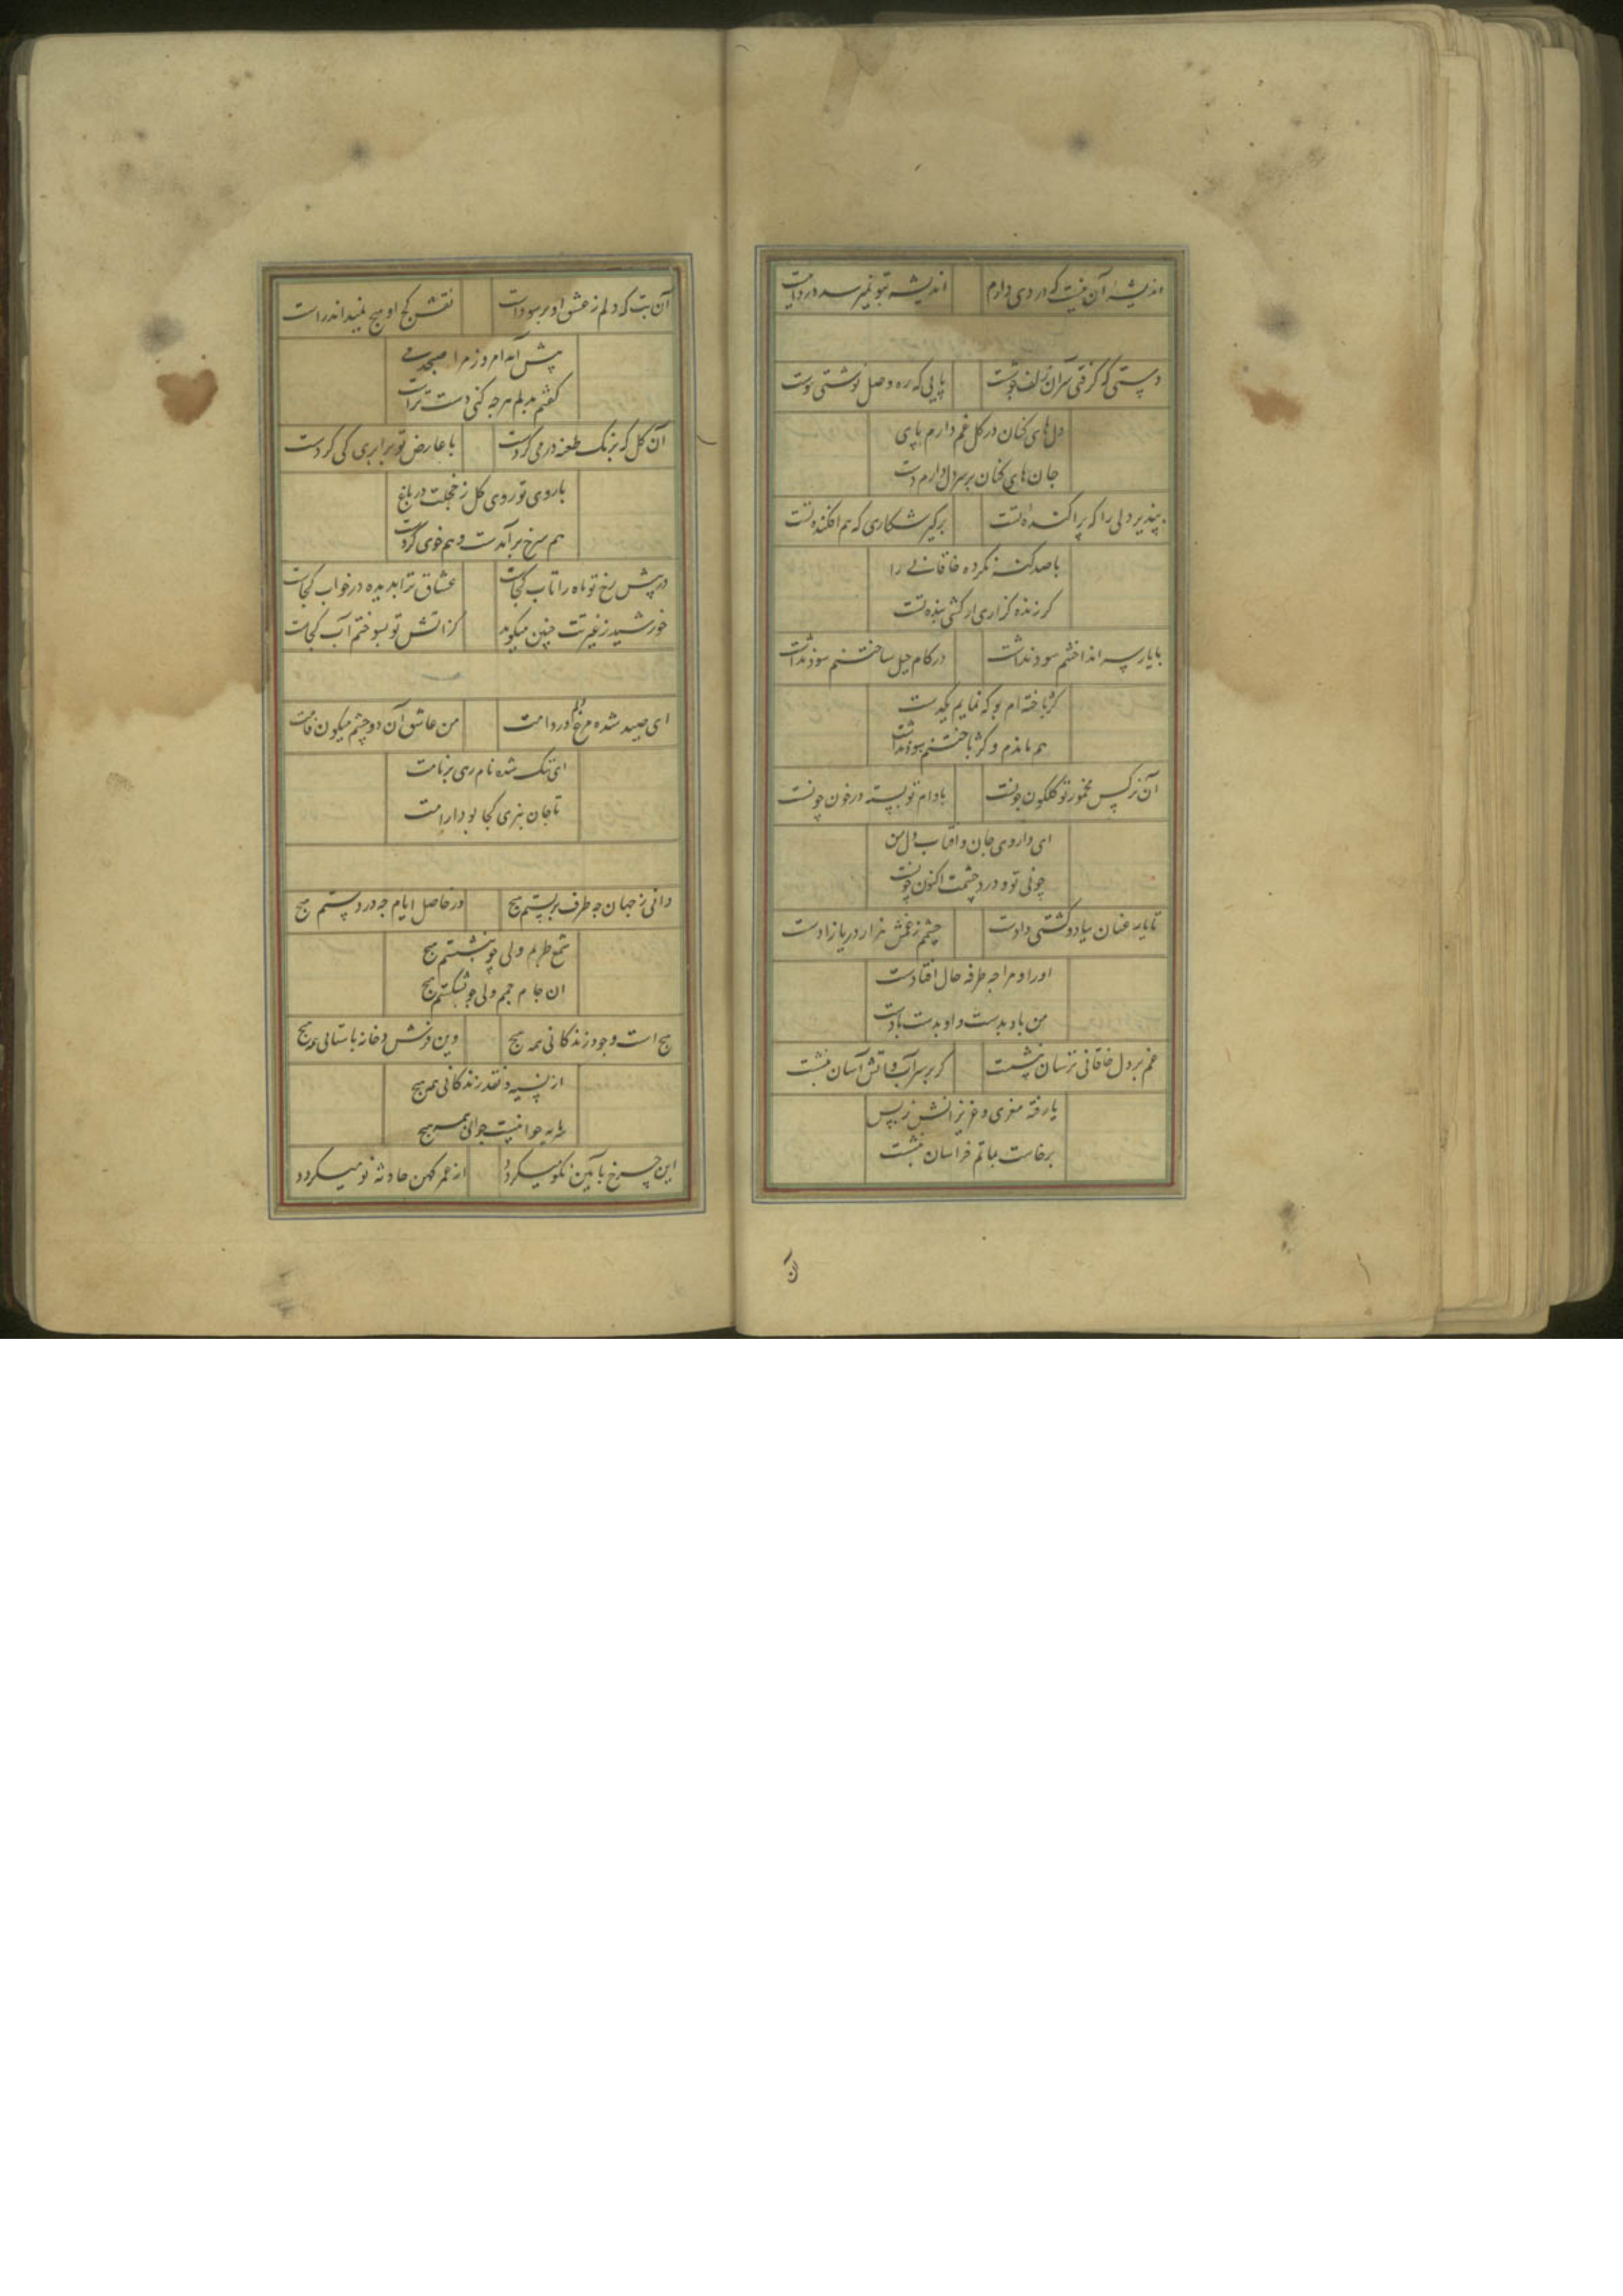 اندیشه آن نیست که دردی دارم اندیشه بتو نمیرسد دردانیست
دستی که گرفتی سر آن زلف چو شست پایی که ره وصل نوشتی پیوست
دل های کنان در کل غم دارم پای
جان های کنان بر سر دل دارم دست
بپذیر دلی را که پراکنده تست برگیر شکاری که هم افکنده تست
با صد گنه نکرده خاقانی را
کر زنده گزاری ار کشی بنده تست
با یار سر انداختنم سود نداشت در کام حیل ساختنم سود نداشت
کژ باخته ام بو که نمایم یکدست
هم ماندم و کژ باختنم سود نداشت
آن نرکس مخمور تو کلکون چونست بادام تو پسته در خون چونست
ای داروی جان و آفتاب دل من
چونی تو و درد چشمت اکنون چونست
تا یار عنان بباد و کشتی دادست چشمم ز غمش هزار دریا زادست
او را و مرا چه طرفه حال افتادست
من باد بدست و او بدست بادست
غم بر دل خاقانی ترسان بنشست کر بر سر آب و آتش آسان بنشست
یا رفته معزی و عزیزانش ز پس
برخاست بماتم خراسان بنشست
آن
آن بت که دلم ز عشق او پر سوداست نقش کج او هیچ نمیداند راست
پیش آمد امروز مرا صبحدمی
کفتم بدلم هرچه کنی دست تراست
آن کل که برنک طعنه در می کردست با عارض تو برابری کی کردست
با روی تو روی کل ز خجلت در باغ
هم سرخ بر آمدست و هم خوی کردست
در پیش رخ تو ماه را تاب کجاست عشاق ترا بدیده در خواب کجاست
خورشید ز غیرتت چنین میکوید کز آتش تو بسوختم آب کجاست
ای صید شده مرغ دلم در دامت من عاشق آن دو چشم میکون فامت
ای ننک شده نام رهی بر نامت
تا جان نبری کجا بود آرامت
دانی ز جهان چه طرف بربستم هیچ وز حاصل ایام چه در دستم هیچ
شمع طربم ولی چو بنشستم هیچ
آن جام جمم ولی چو بشکستم هیچ
هیچ است وجود زندکانی همه هیچ وین فرش و خانه باستانی همه هیچ
از نسیه و نقد زندکانی همه هیچ
سرمایه جوانیست جوانی همه هیچ
این چرخ باآیین نکو میکردد از عمر کهن حادثه نو میکردد